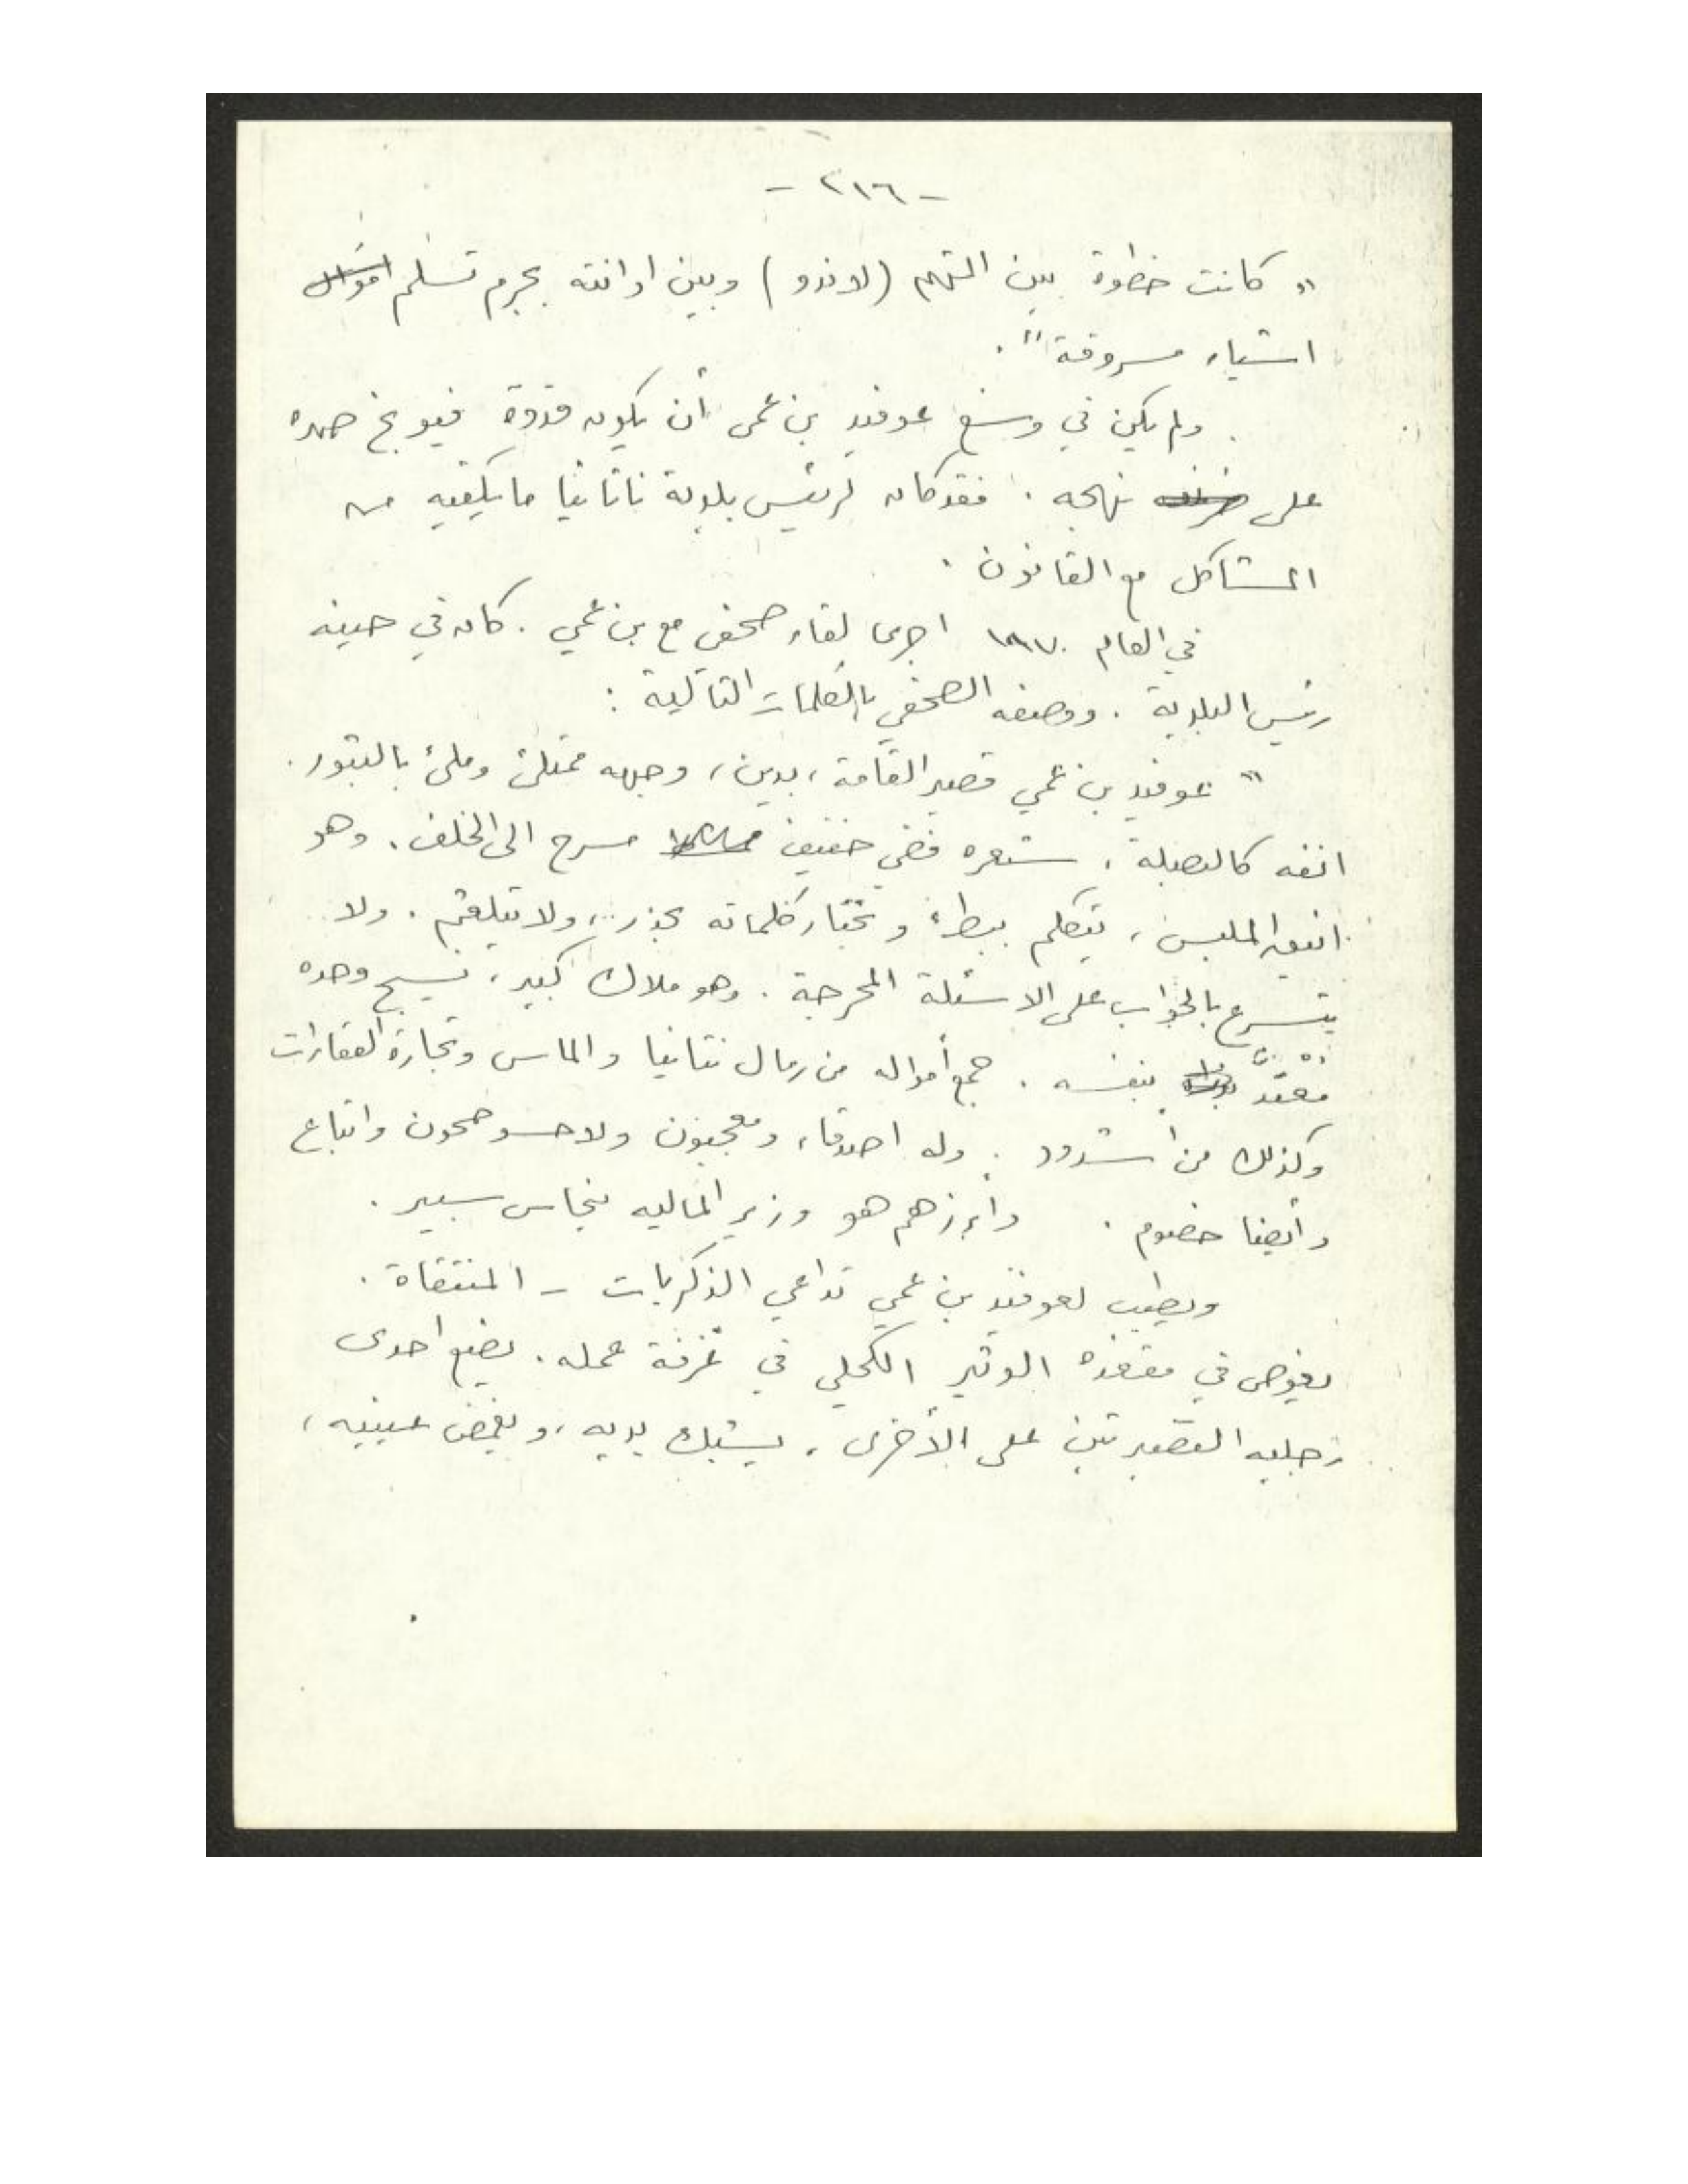 - ٢١٦ -
" كانت خطوة بين المتهم (لاندو) وبين ادانته بجرم تسلم اموال
اشياء مسروقة " .
ولم يكن في وسع عوفيد بن عمي أن يكون قدوة فيوبخ صهره
على نهجه . فقد كان لرئيس بلدية ناتانيا ما يكفيه من
المشاكل مع القانون .
في العام ١٩٧٠ اجرى لقاء صحفي مع بن عمي . كان في حينه
رئيس البلدية . ووصفه الصحفي بالكلمات التالية :
" عوفيد بن عمي قصير القامة ، بدين ، وجهه ممتلئ ومليئ بالبثور .
انفه كالبصلة ، شعره فضي خفيف مسرح الى الخلف . وهو
انيق الملبس ، يتكلم ببطء ويختار كلماته بحذر ، ولا يتلعثم . ولا
يتسرع بالجواب على الاسئلة المحرجة . وهو ملاك كبير ، نسيج وحده
معتدّ بنفسه . جمع أمواله من رمال نتانيا والماس وتجارة العقارات
وكذلك من اشدود . وله اصدقاء ومعجبون ولاحسو صحون واتباع
وأيضا خصوم . وأبرزهم هو وزير الماليه بنحاس سبير .
ويطيب لعوفيد بن عمي تداعي الذكريات - المنتقاة .
يغوص في مقعده الوثير الكحلي في غرفة عمله . يضع احدى
رجليه القصيرتين على الأخرى ، يشبك يديه ، ويغمض عينيه ،